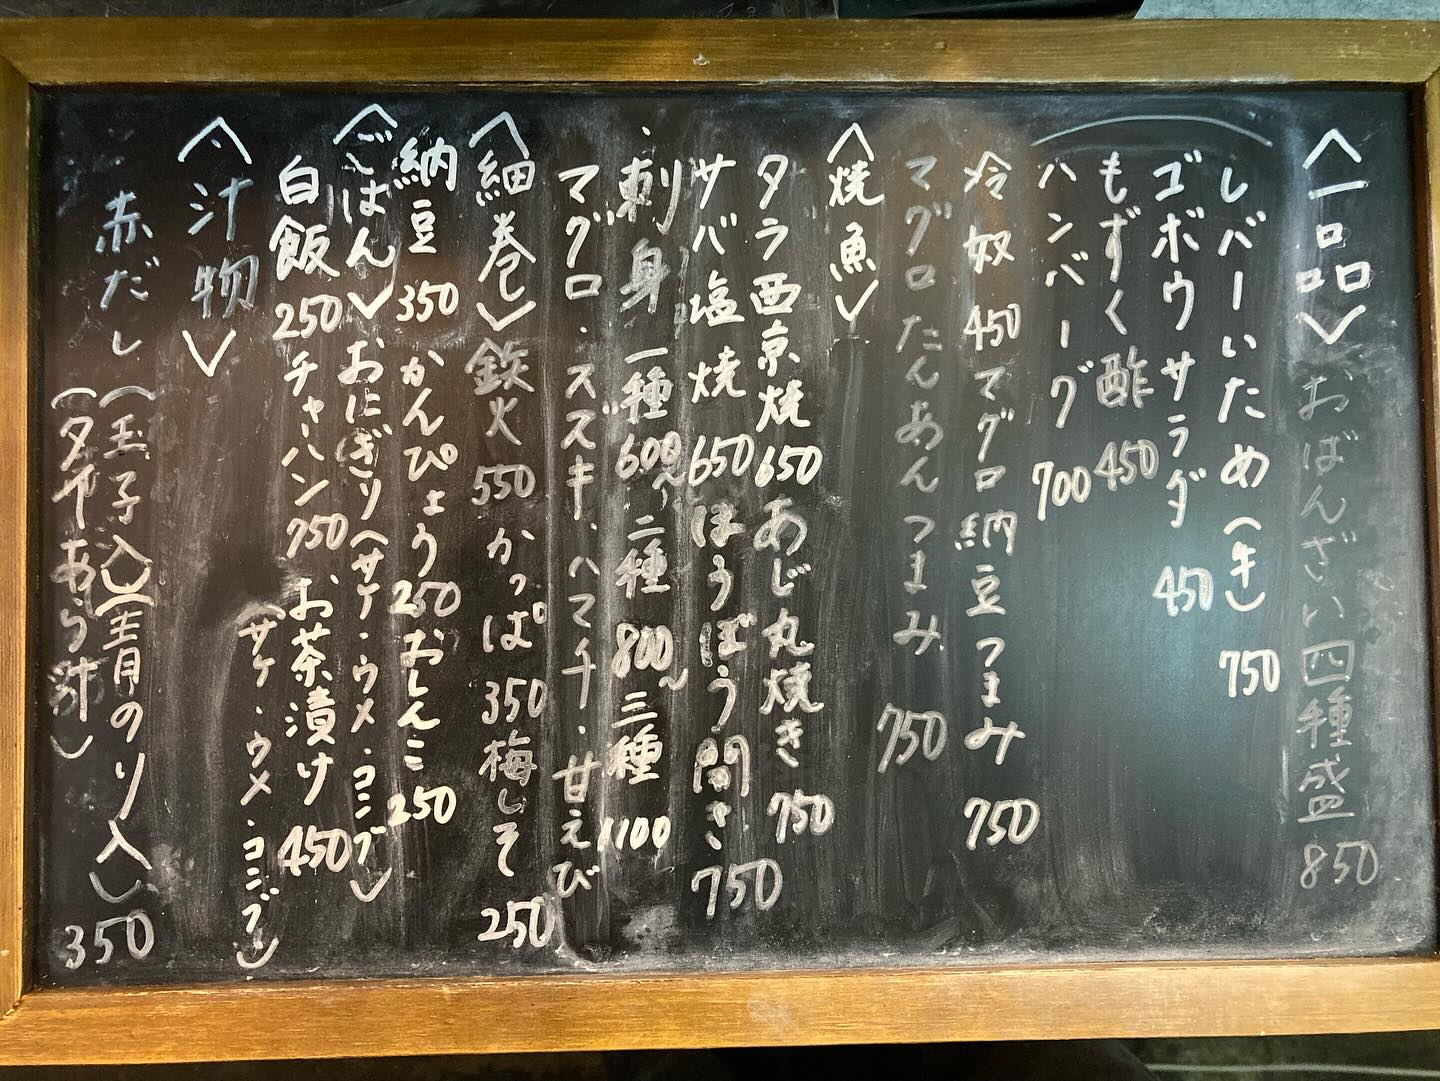 〈一品〉おばんざい四種盛 850
レバーいため(牛) 750
ゴボウサラダ 450
もずく酢 450
ハンバーグ 700
冷奴 450 マグロ納豆つまみ 750
マグロたんあんつまみ 750
〈焼魚〉
タラ西京焼 650 あじ丸焼き 750
サバ塩焼 650 ほうぼう開き 750
・刺身 一種 600〜 二種 800〜 三種 1100
マグロ・スズキ、ハマチ・甘えび
〈細巻〉鉄火 550 かっぱ 350 梅しそ 250
納豆 350 かんぴょう 250 おしんこ 250
〈ごはん〉おにぎり(サケ・ウメ・コンブ)
白飯 250 チャーハン 750 お茶漬け 450
(サケ・ウメ・コンブ)
〈汁物〉
赤だし(玉子入)(青のり入)
(タイあら汁) 350